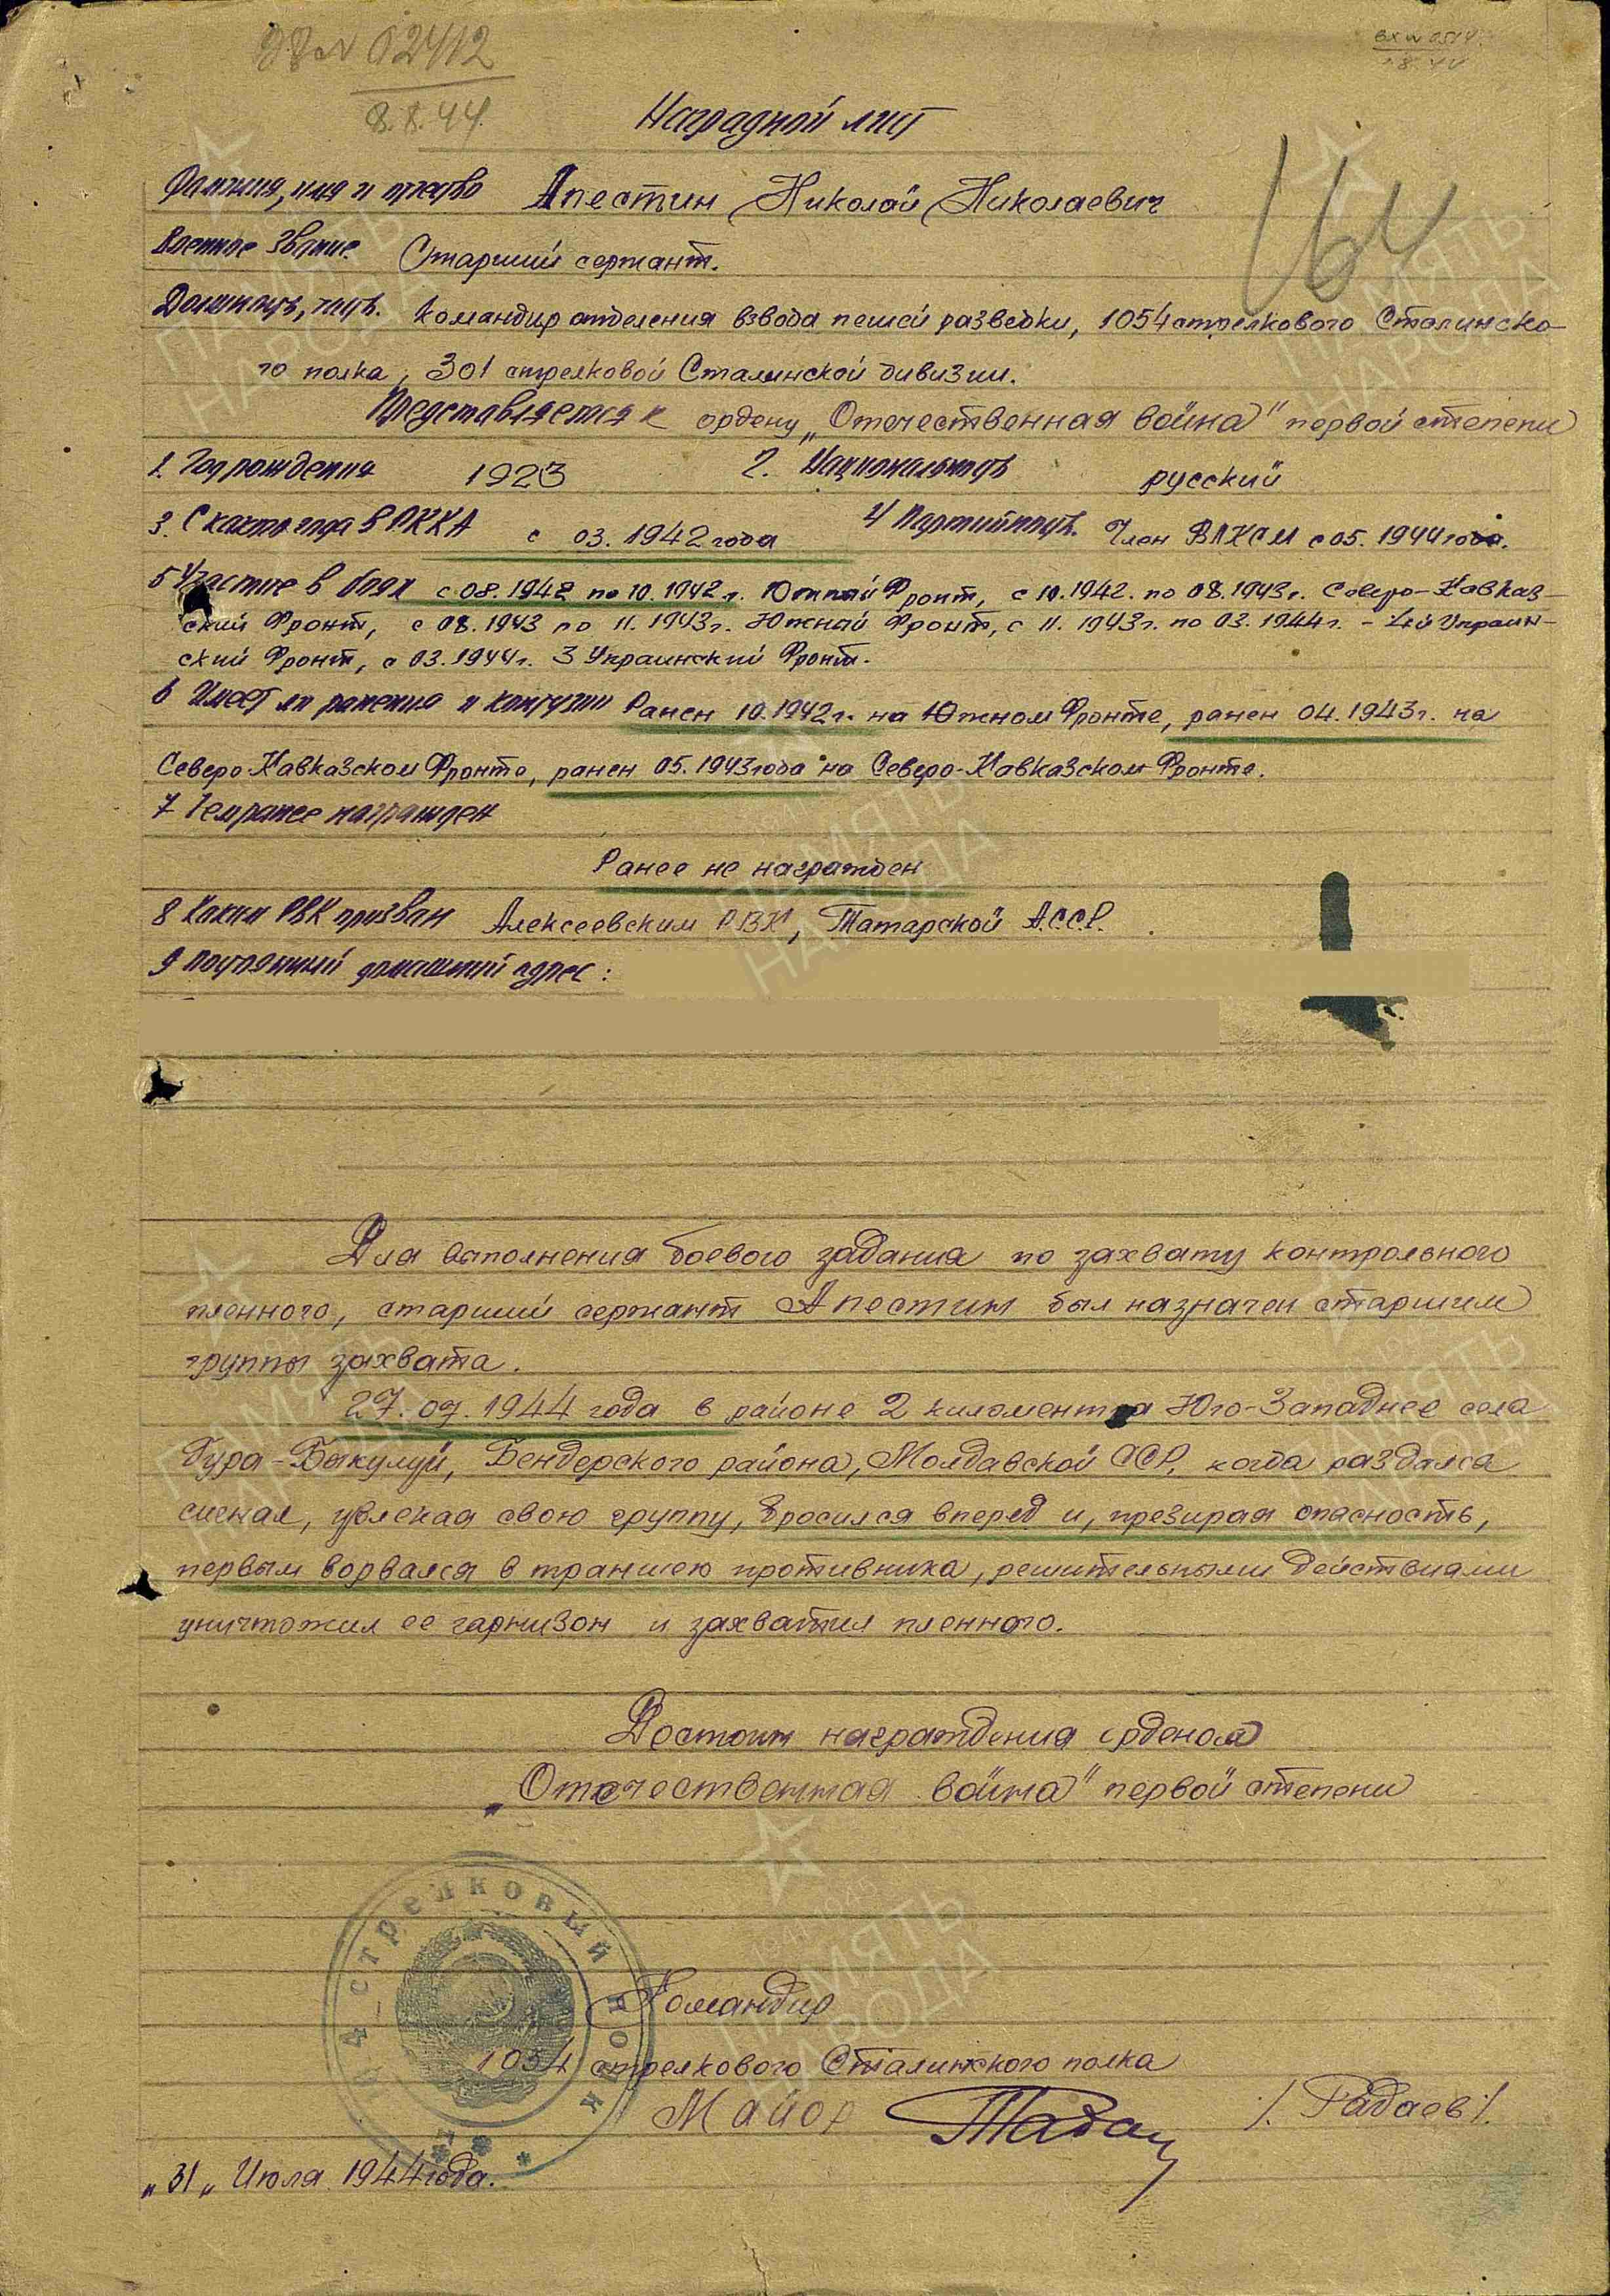 02412
8.8.44.
Наградной лист
164
Фамилия, имя и отчество Апестин Николай Николаевич
Военное звание. Старший сержант.
Должность, часть. Командир отделения взвода пешей разведки, 1054 стрелкового Сталинско-
го полка, 301 стрелковой Сталинской дивизии.
Представляется к ордену „Отечественная война" первой степени
1. Год рождения 1923 2. Национальность русский
3. С какого года в РККА с 03.1942 года 4 Партийность. Член ВЛКСМ с 05.1944 года.
5 Участие в боях с 08.1942 по 10.1942 г. Южный Фронт, с 10.1942. по 08.1943 г. Северо-Кавказ-
ский Фронт, с 08.1943 по 11.1943 г. Южный Фронт, с 11.1943 г. по 03.1944 г. - 4ый Украин-
ский Фронт, с 03.1944 г. 3 Украинский Фронт.
6 Имеет ли ранения и контузии Ранен 10.1942 г. на Южном Фронте, ранен 04.1943 г. на
Северо Кавказском Фронте, ранен 05.1943 года на Северо-Кавказском Фронте.
7 Чем ранее награжден
Ранее не награжден
8 Каким РВК призван Алексеевским РВК, Татарской А.С.С.Р.
9 Постоянный домашний адрес:
Для выполнения боевого задания по захвату контрольного
пленного, старший сержант Апестин был назначен старшим
группы захвата.
27.07.1944 года в районе 2 километра Юго-Западнее села
Гура-Быкулуй, Бендерского района, Молдавской ССР, когда раздался
сигнал, увлекая свою группу, бросился вперед и, презирая опасность,
первым ворвался в траншею противника, решительными действиями
уничтожил ее гарнизон и захватил пленного.
Достоин награждения орденом
„Отечественная война" первой степени
стрелковый полк
Командир
1054 стрелкового Сталинского полка
Майор /. Радаев /.
„31„ Июля 1944 года.
ПАМЯТЬ
НАРОДА